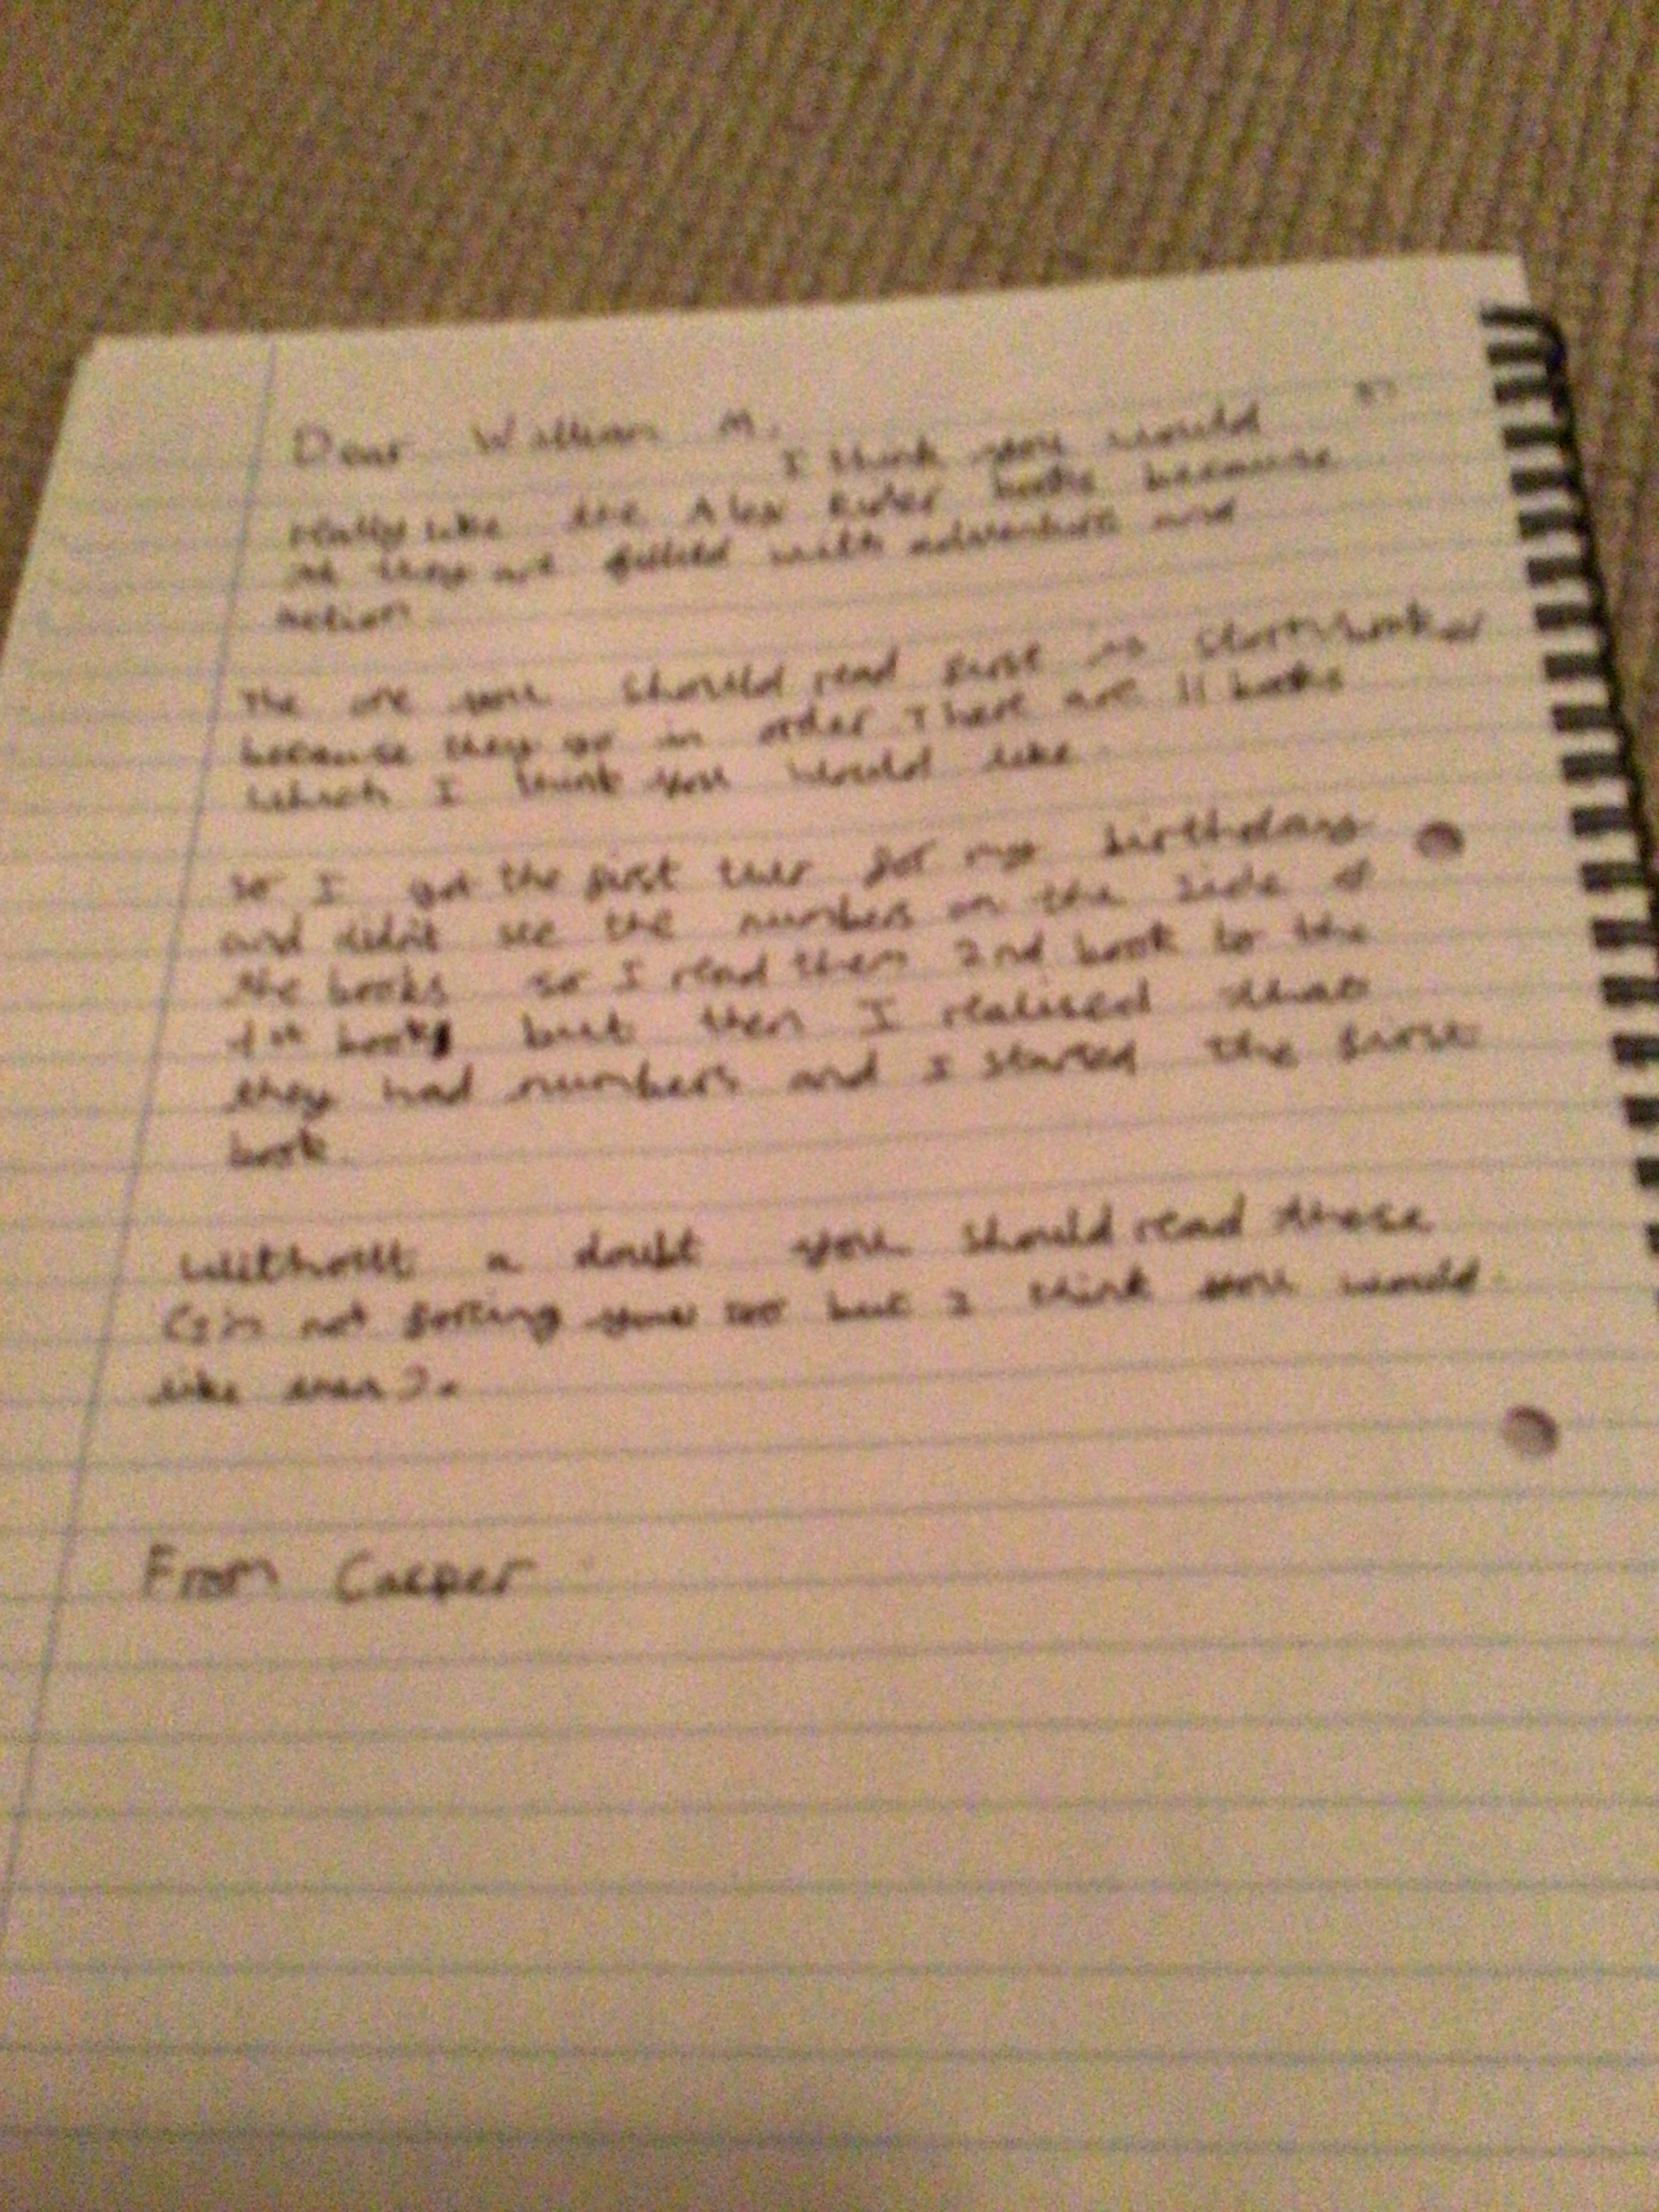 Dear William M.
I think you would
really like the Alex Rider books because
they are filled with adventure and
action
The one you should read first is Stormbreaker
because they go in order There are 11 books
which I think you would like
So I got the first two for my birthday
and didn't see the numbers on the side of
the books so I read them 2nd book to the
1st book but then I realised that
they had numbers and I started the first
book.
Without a doubt you should read these
not forcing you but I think you would
like them).
From Casper